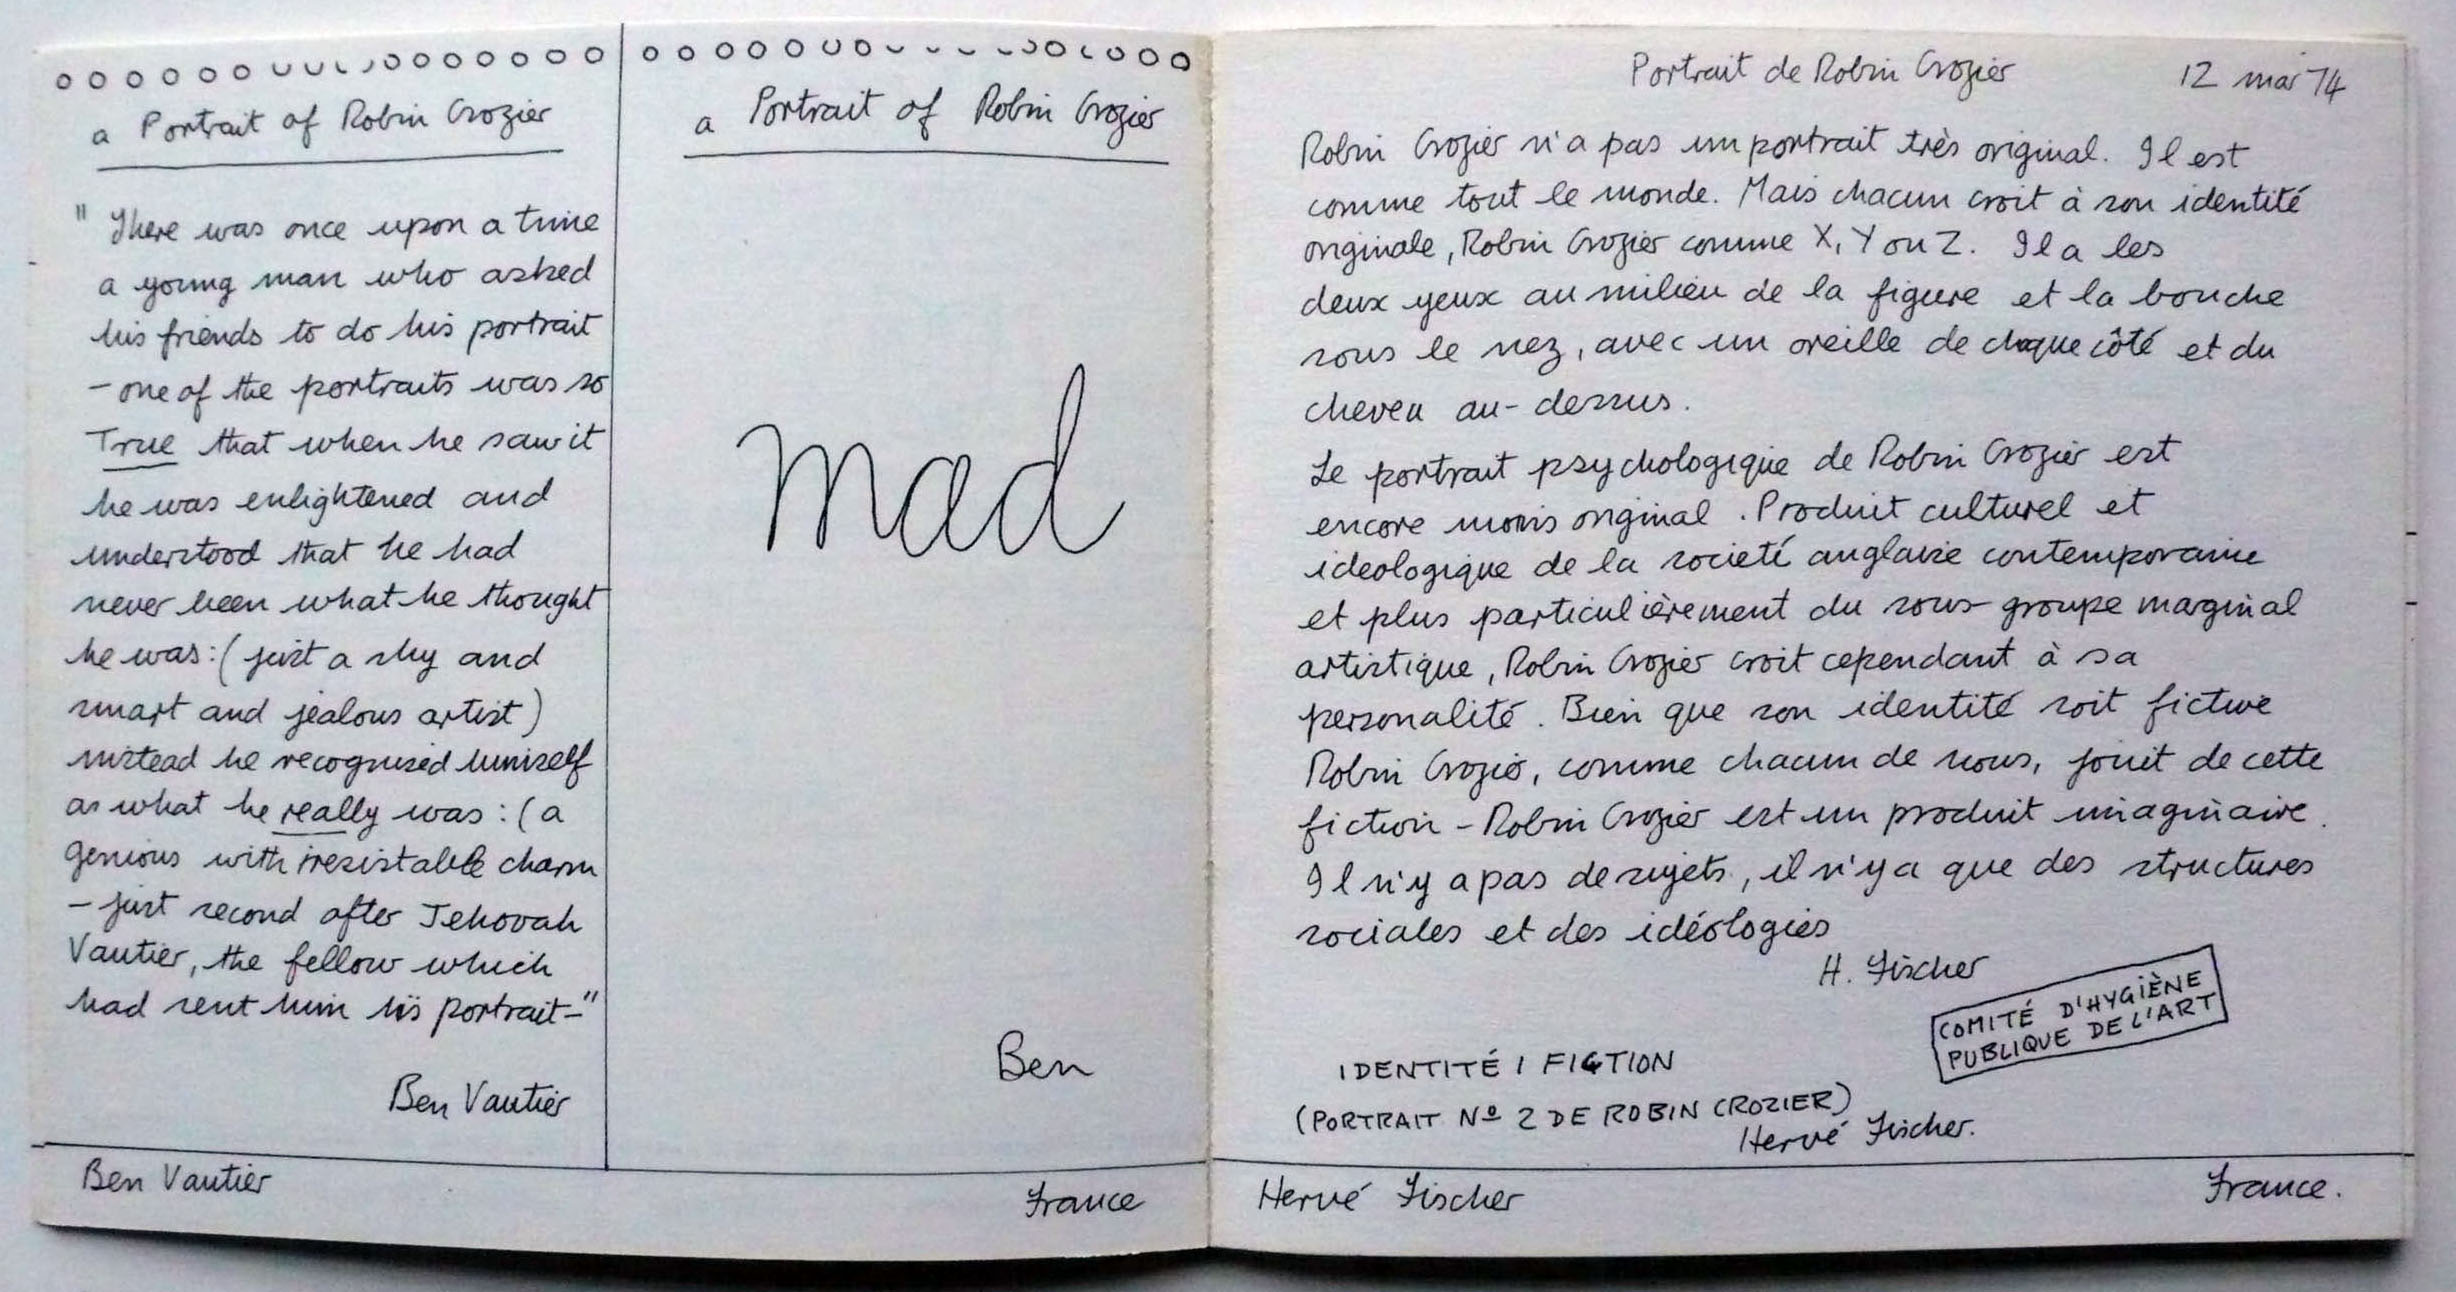 a Portrait of Robin Crozier
" There was once upon a time
a young man who asked
his friends to do his portrait
- one of the portraits was so
True that when he saw it
he was enlightened and
understood that he had
never been what he thought
he was: ( just a shy and
smart and jealous artist )
instead he recognised himself
as what he really was : ( a
genious with irresistable charm
- just second after Jehovah
Vautier, the fellow which
had sent him his portrait - "
Ben Vautier
a Portrait of Robin Crozier
mad
Ben
Ben Vautier
France
Portrait de Robin Crozier
12 mai 74
Robin Crozier n'a pas un portrait très original. Il est
comme tout le monde. Mais chacun croit à son identité
originale, Robin Crozier comme X, Y ou Z. Il a les
deux yeux au milieu de la figure et la bouche
sous le nez, avec un oreille de chaque côté et du
cheveu au-dessus.
Le portrait psychologique de Robin Crozier est
encore moins original. Produit culturel et
ideologique de la societé anglaise contemporaine
et plus particulièrement du sous-groupe marginal
artistique, Robin Crozier croit cependant à sa
personalité. Bien que son identité soit fictive
Robin Crozier, comme chacun de nous, jouit de cette
fiction - Robin Crozier est un produit imaginaire.
Il n'y a pas de sujets, il n'y a que des structures
sociales et des idéologies
H. Fischer
COMITÉ D'HYGIÈNE
PUBLIQUE DE L'ART
IDENTITÉ / FICTION
(PORTRAIT Nº 2 DE ROBIN CROZIER)
Hervé Fischer.
Hervé Fischer
France.